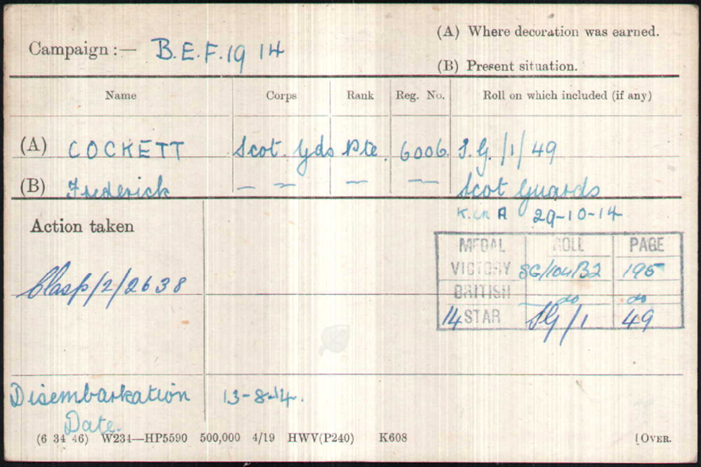 (A) Where decoration was earned.
Campaign :— B.E.F. 1914
(B) Present situation.
Name Corps Rank Reg. No. Roll on which included (if any)
(A) COCKETT Scot. Gds Pte. 6006. S.G./1/49
(B) Frederick — — — — Scot Guards
K. in A 29-10-14
Action taken
MEDAL ROLL PAGE
VICTORY SG/104B2 195
BRITISH do do
14 STAR SG/1 49
Clasp/2/2638
Disembarkation 13-8-14.
Date.
(6 34 46) W234—HP5590 500,000 4/19 HWV(P240) K608 [OVER.